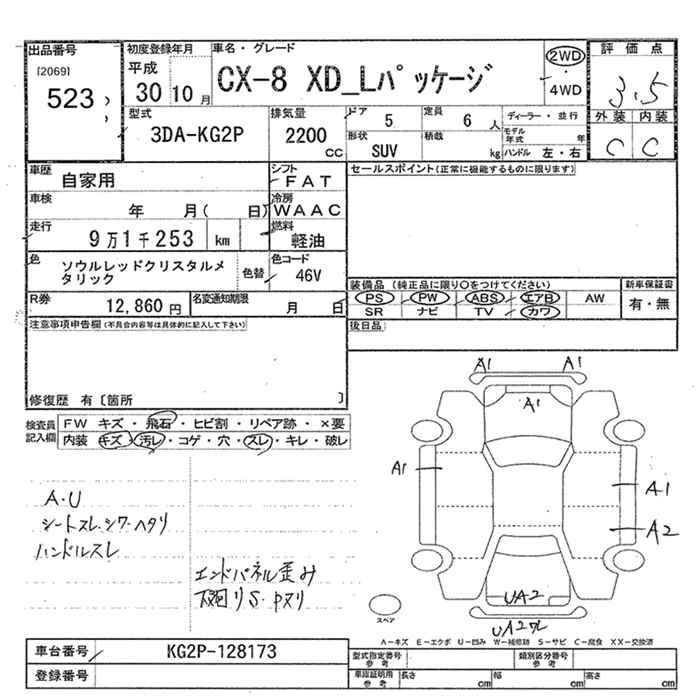 出品番号
[2069]
523
初度登録年月
平成
30 10月
車名・グレード
CX-8 XD_Lパッケージ
2WD
・
4WD
評価点
3.5
外装 内装
C C
型式
3DA-KG2P
排気量
2200
CC
ドア
5
定員
6 人
形状
SUV
積載
kg
ディーラー・並行
モデル年式 年
ハンドル 左・右
車歴
自家用
シフト
FAT
車検
年 月( 日)
冷房
WAAC
走行
9万1千253 km
燃料
軽油
色
ソウルレッドクリスタルメタリック
色替
色コード
46V
R券
12,860円
名変通知期限
月 日
セールスポイント(正常に機能するものに限ります)
装備品 (純正品に限り○をつけてください)
PS PW ABS エアB AW
SR ナビ TV カワ
新車保証書
有・無
後日品
注意事項申告欄(不具合内容等は具体的に記入して下さい)
修復歴 有〔箇所 〕
検査員記入欄
FW キズ・飛石・ヒビ割・リペア跡・×要
内装 キズ・汚レ・コゲ・穴・スレ・キレ・破レ
A・U
シートスレ.シワ.ヘタリ
ハンドルスレ
エンドパネル歪み
下廻りS.中ヌリ
A1 A1
A1
A1
A1
A2
UA2
UA2ワレ
スペア
A-キズ E-エクボ U-凹み W-補修跡 S-サビ C-腐食 XX-交換済
車台番号
KG2P-128173
登録番号
型式指定番号
参考
類別区分番号
参考
車庫証明用
参考
長さ cm
幅 cm
高さ cm